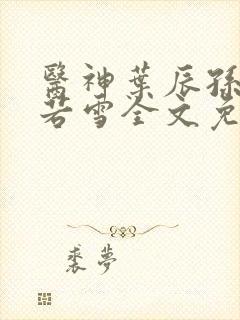 醫神葉辰孫
若雪全文免
裘夢